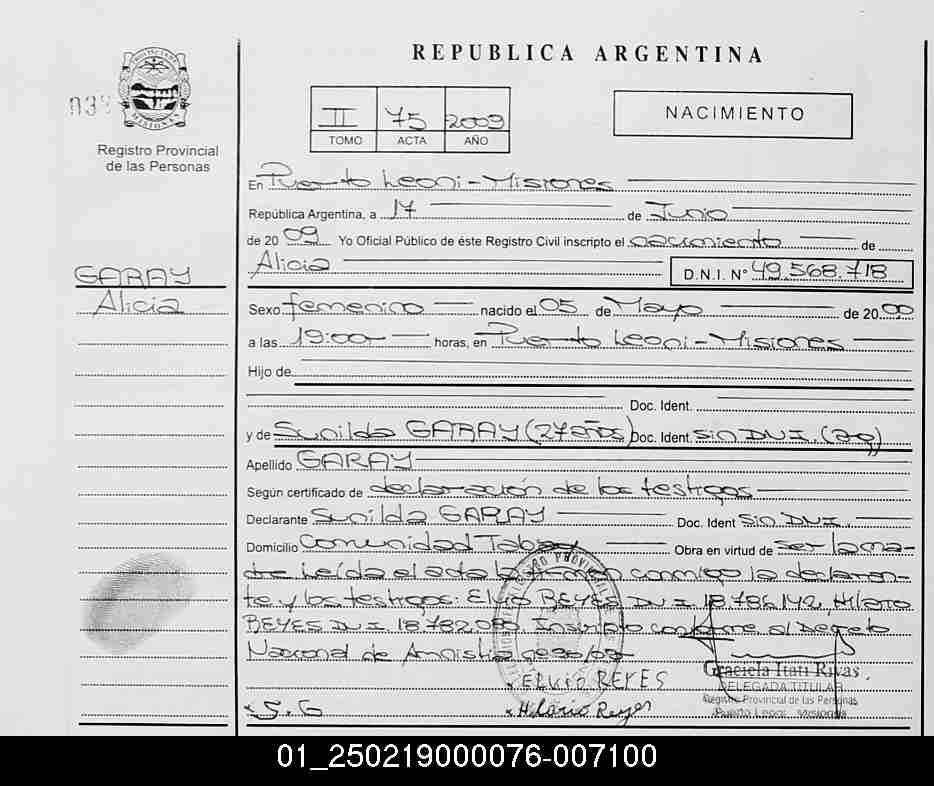 REPUBLICA ARGENTINA
PROVINCIA DE
MISIONES
Registro Provincial
de las Personas
II 75 2009
TOMO ACTA AÑO
NACIMIENTO
En Puerto Leoni - Misiones
República Argentina, a 17 de Junio
de 2009 Yo Oficial Público de éste Registro Civil inscripto el nacimiento de
Alicia D.N.I. Nº 49.568.718
GARAY
Alicia
Sexo femenino nacido el 05 de Mayo de 2000
a las 19:00 horas, en Puerto Leoni - Misiones
Hijo de
Doc. Ident.
y de Sunilda GARAY (27 años) Doc. Ident. Sin D N I. (arg)
Apellido GARAY
Según certificado de declaración de los testigos
Declarante Sunilda GARAY Doc. Ident Sin DNI.
Domicilio Comunidad Obra en virtud de ser la ma-
dre Leída el acta la firman conmigo la declaran-
te y los testigos: Elvio REYES D N I 18.786.142, Hilario
REYES D N I 18.782.080. Inscripto conforme al Decreto
Nacional de Amnistía nº 90/09
x ELVIO REYES
Graciela Itatí Rivas
DELEGADA TITULAR
Registro Provincial de las Personas
Puerto Leoni Misiones
x S.G x Hilario Reyes
01_250219000076-007100